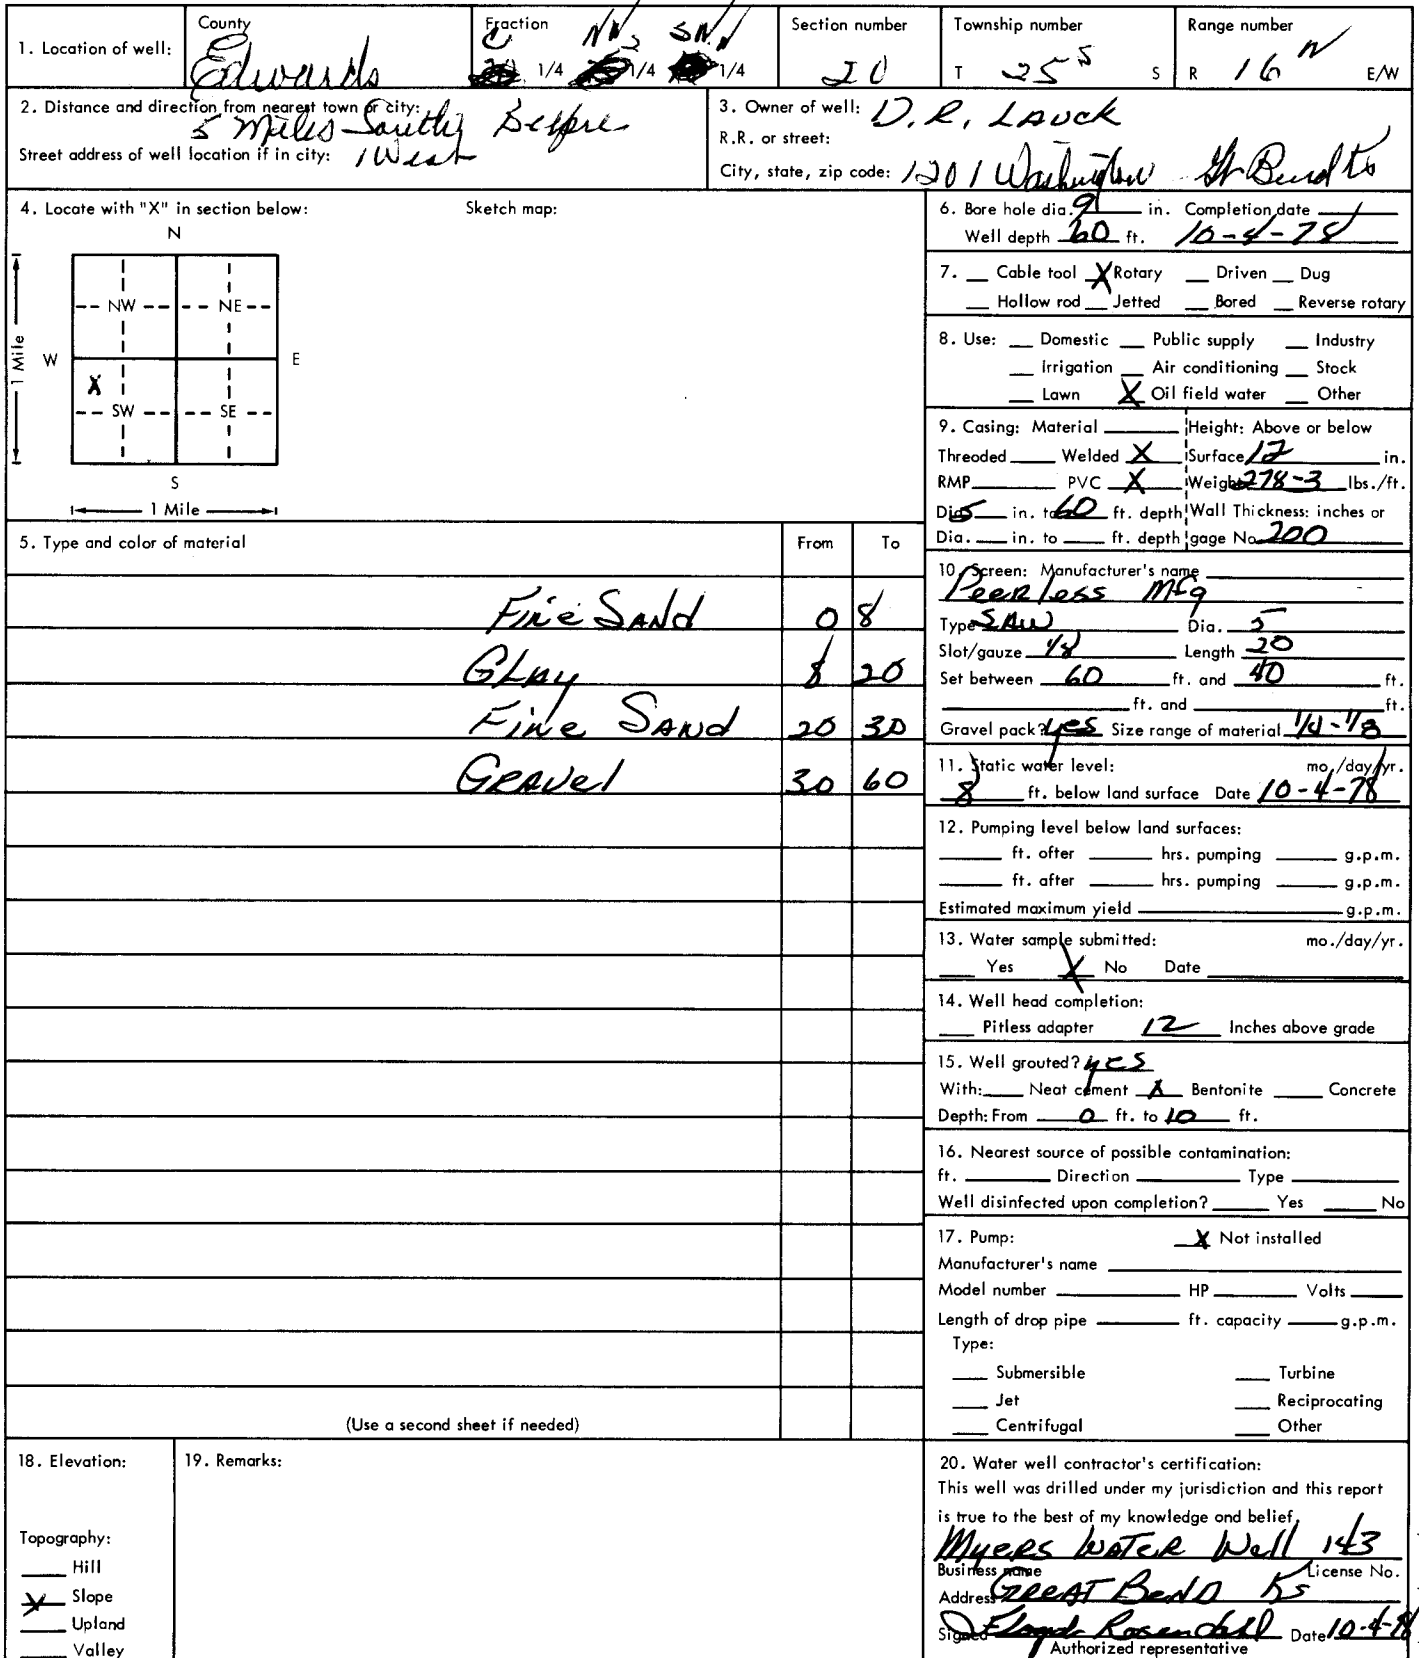 1. Location of well: County Edwards Fraction C 1/4 NW 1/4 SW 1/4 Section number 20 Township number T 25 S S Range number R 16 W E/W
2. Distance and direction from nearest town or city: 5 Miles South Belpre
Street address of well location if in city: 1 West
3. Owner of well: D.R. Lauck
R.R. or street:
City, state, zip code: 1201 Washington Gt Bend Ks
4. Locate with "X" in section below: Sketch map:
N
NW NE
W E
X
SW SE
S
1 Mile
1 Mile
5. Type and color of material From To
Fine Sand 0 8
Clay 8 20
Fine Sand 20 30
Gravel 30 60
(Use a second sheet if needed)
6. Bore hole dia. 9 in. Completion date
Well depth 60 ft. 10-4-78
7. Cable tool X Rotary Driven Dug
Hollow rod Jetted Bored Reverse rotary
8. Use: Domestic Public supply Industry
Irrigation Air conditioning Stock
Lawn X Oil field water Other
9. Casing: Material Height: Above or below
Threaded Welded X Surface 12 in.
RMP PVC X Weight 278-3 lbs./ft.
Dia. 5 in. to 60 ft. depth Wall Thickness: inches or
Dia. in. to ft. depth gage No. 200
10. Screen: Manufacturer's name
Peerless Mfg
Type SAW Dia. 5
Slot/gauze 1/8 Length 20
Set between 60 ft. and 40 ft.
ft. and ft.
Gravel pack? yes Size range of material 1/4-1/8
11. Static water level: mo./day/yr.
8 ft. below land surface Date 10-4-78
12. Pumping level below land surfaces:
ft. after hrs. pumping g.p.m.
ft. after hrs. pumping g.p.m.
Estimated maximum yield g.p.m.
13. Water sample submitted: mo./day/yr.
Yes X No Date
14. Well head completion:
Pitless adapter 12 Inches above grade
15. Well grouted? yes
With: Neat cement X Bentonite Concrete
Depth: From 0 ft. to 10 ft.
16. Nearest source of possible contamination:
ft. Direction Type
Well disinfected upon completion? Yes No
17. Pump: X Not installed
Manufacturer's name
Model number HP Volts
Length of drop pipe ft. capacity g.p.m.
Type:
Submersible Turbine
Jet Reciprocating
Centrifugal Other
18. Elevation:
Topography:
Hill
X Slope
Upland
Valley
19. Remarks:
20. Water well contractor's certification:
This well was drilled under my jurisdiction and this report
is true to the best of my knowledge and belief.
Myers Water Well 143
Business name License No.
Address Great Bend Ks
Signed Floyd Rosendahl Date 10-4-78
Authorized representative